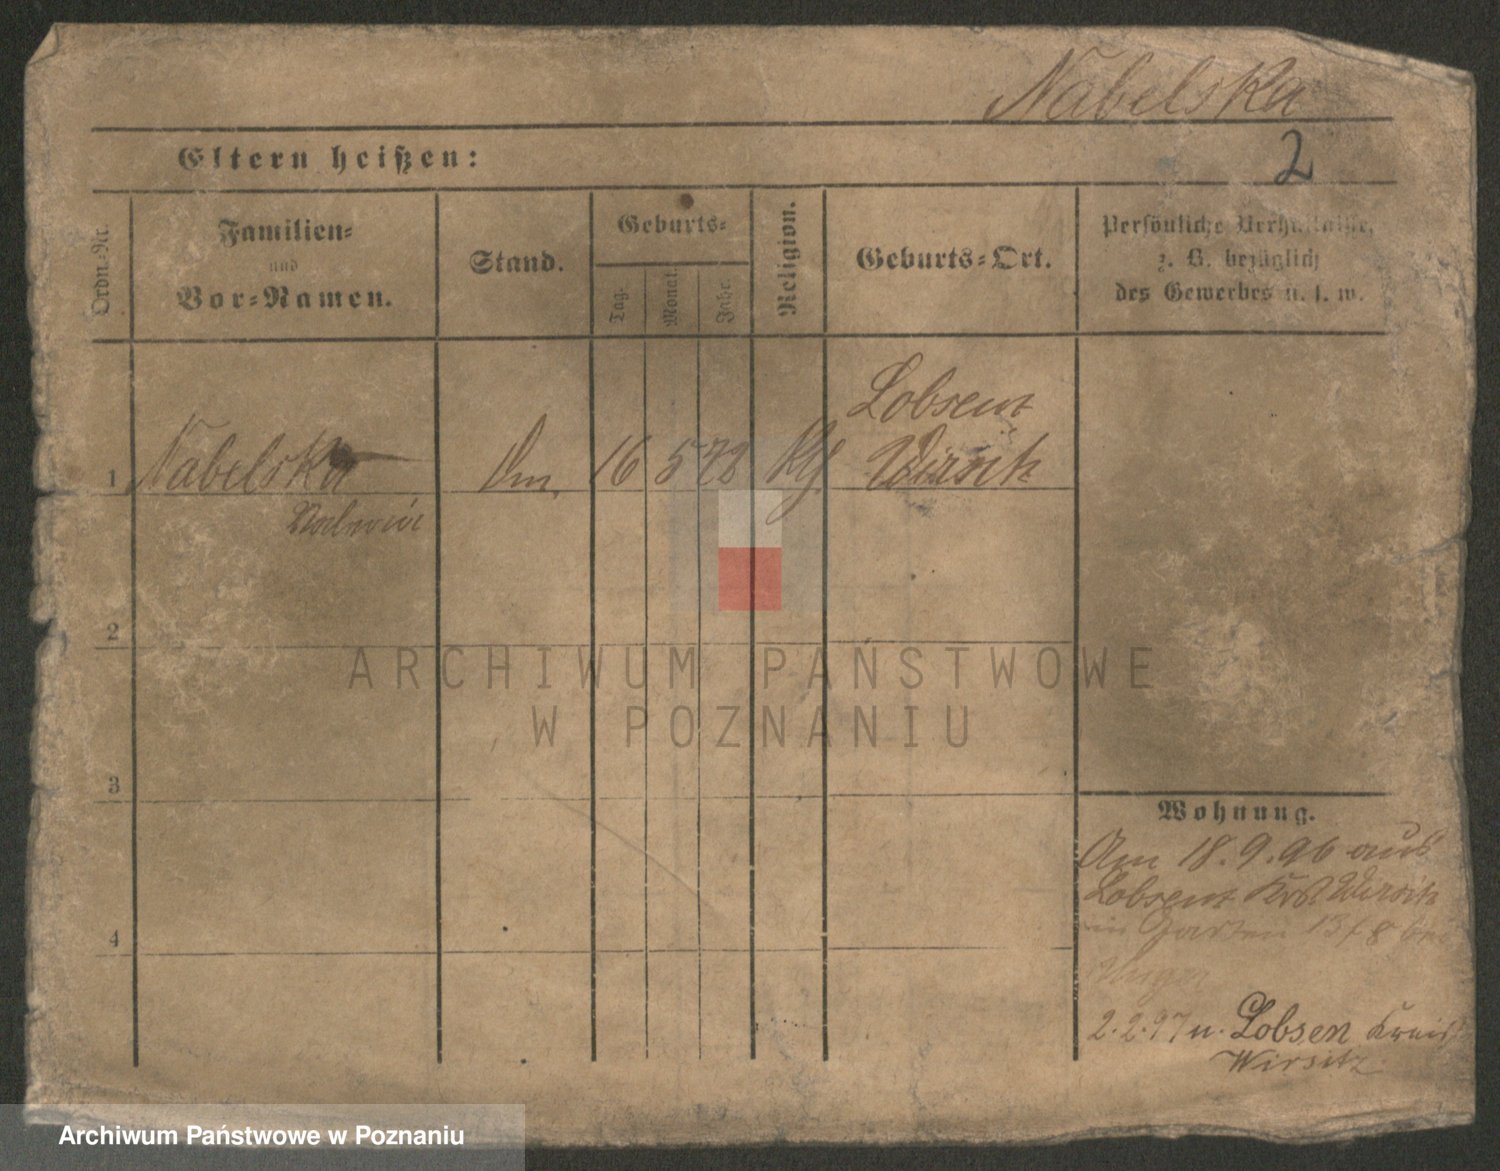 Nabelska
2
Eltern heißen:
Ordn.-Nr.
Familien-
und
Vor-Namen.
Stand.
Geburts-
Tag.
Monat.
Jahr.
Religion.
Geburts-Ort.
Persönliche Verhältnisse,
z. B. bezüglich
des Gewerbes u. s. w.
Lobsens
1 Nabelska 16 5 72 Wirsitz
2
ARCHIWUM PAŃSTWOWE
W POZNANIU
3
Wohnung.
Am 18.9.96 aus
Lobsens Wirsitz
in Garten 13/8 bei
4
2.2.97 n. Lobsen Kreis
Wirsitz
Archiwum Państwowe w Poznaniu